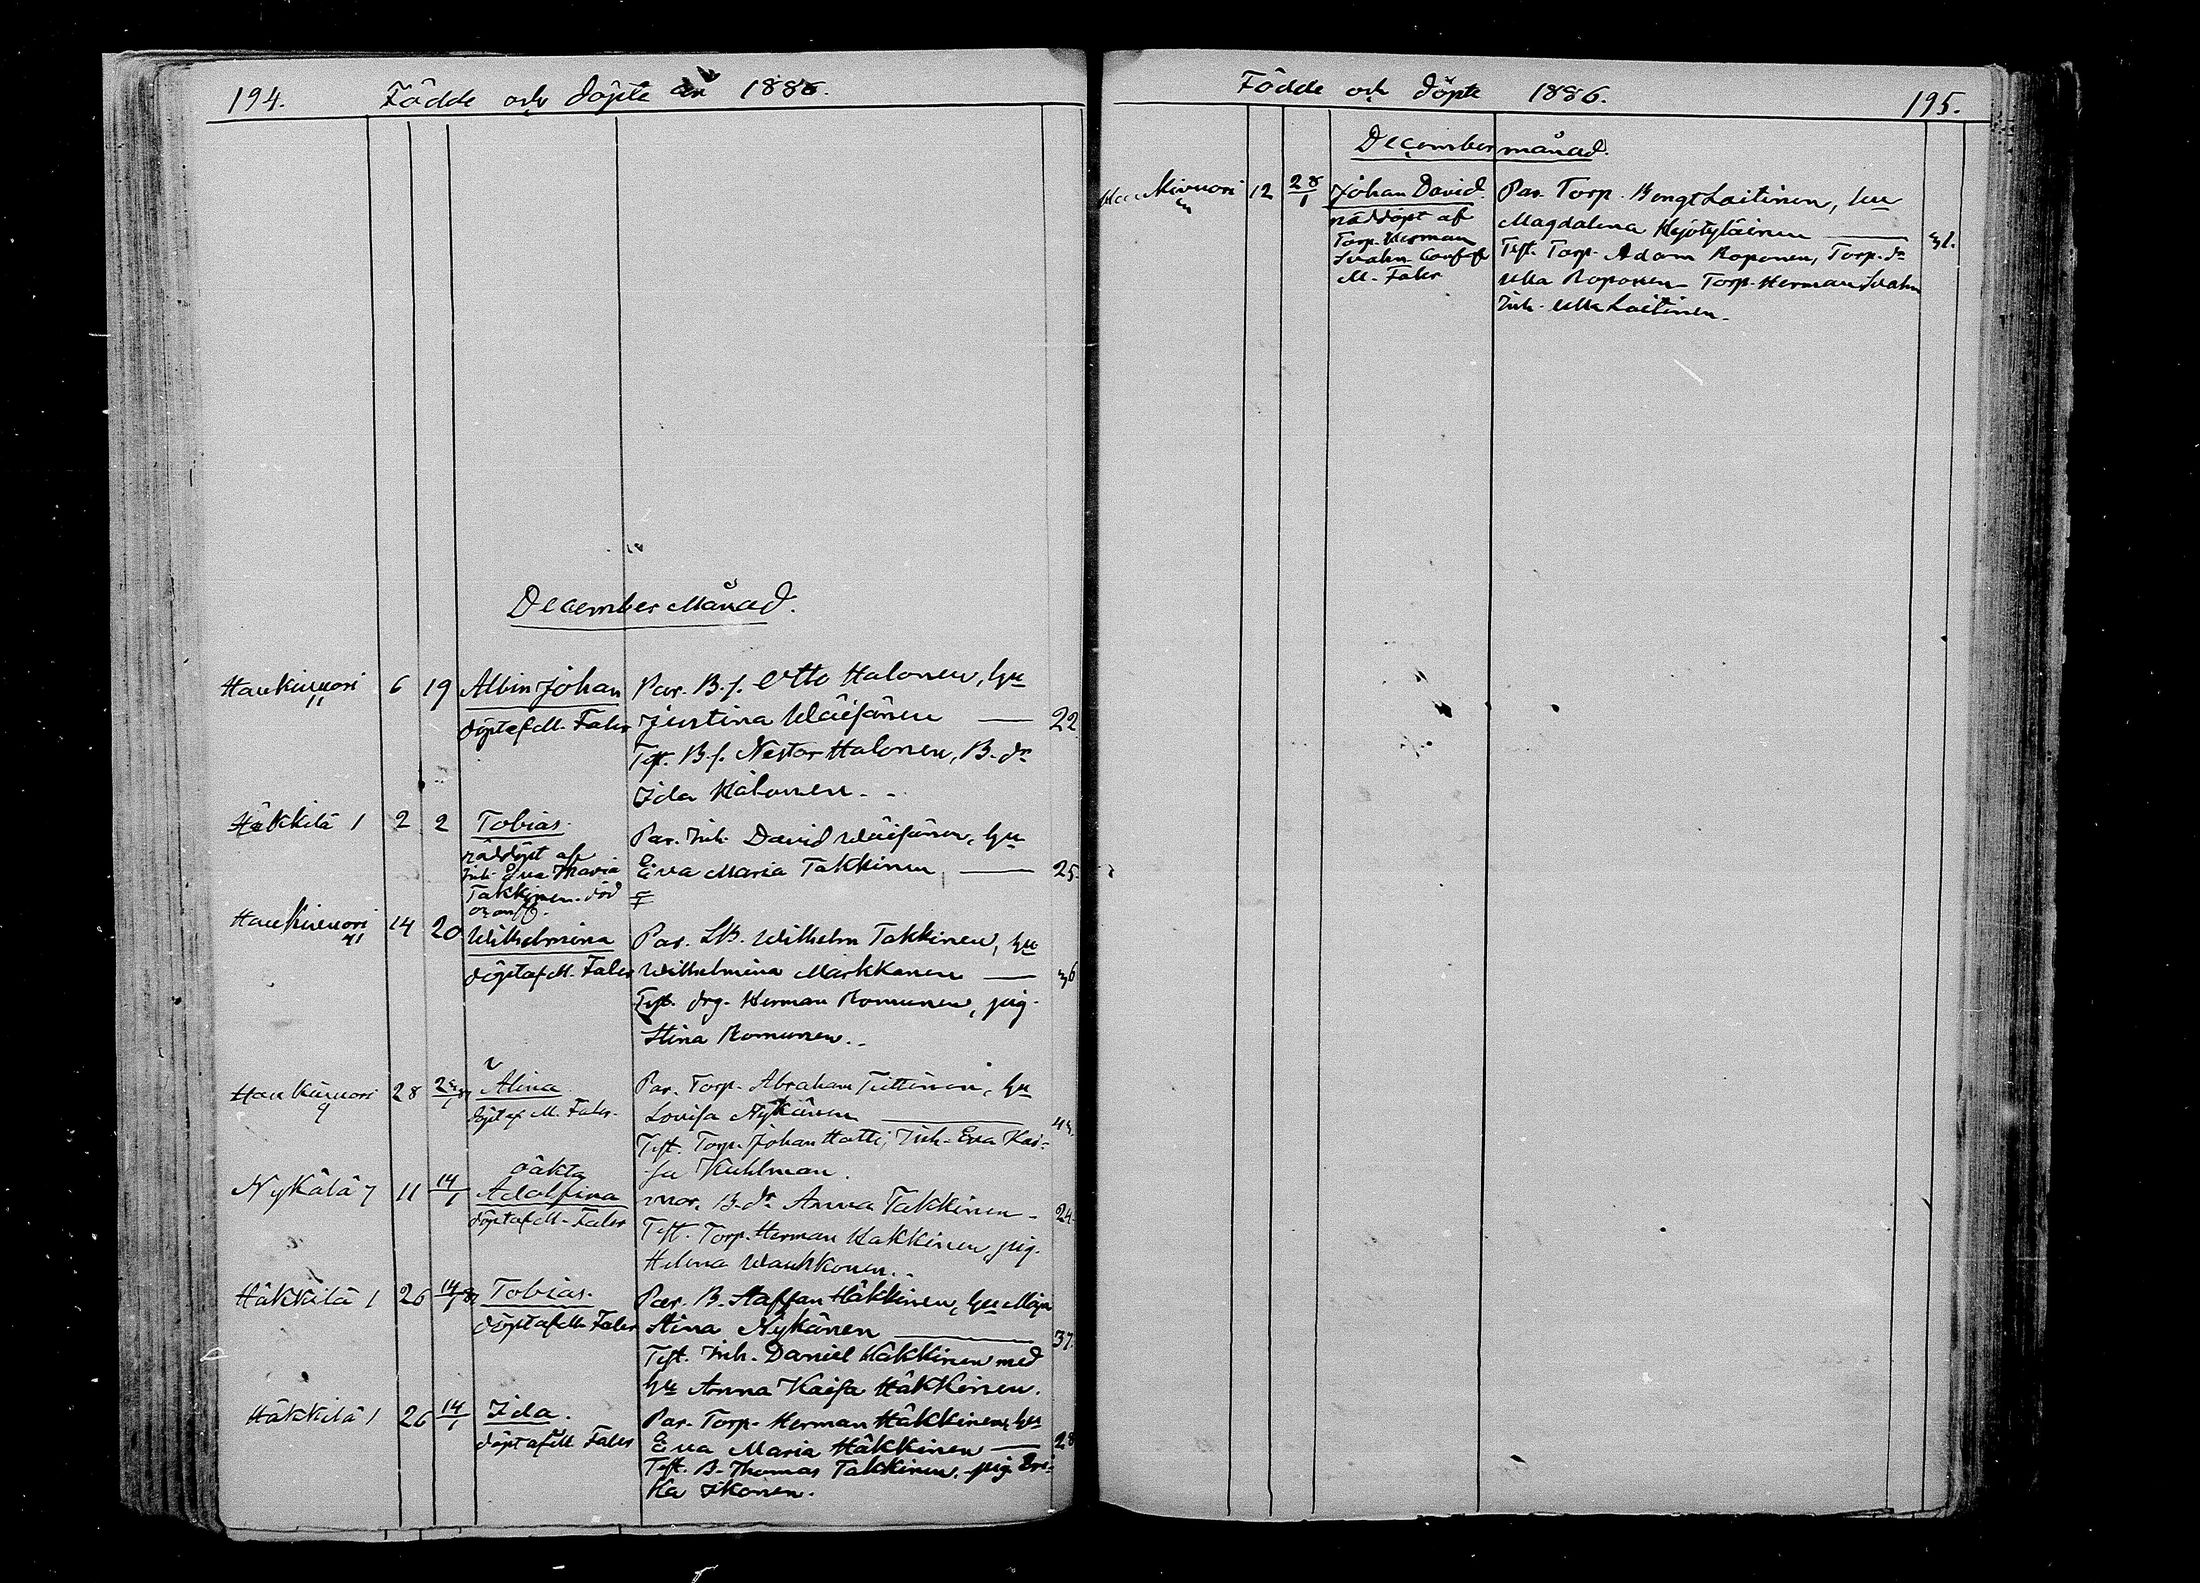 194. Födde och döpte år 1886.
December Månad.
Haukivuori 11 6 19 Albin Johan Par. B.f. Otto Halonen, hu
döpt af M. Faler Justina Wäisänen — 22
Test. B.f. Nestor Halonen, B. dr
Ida Halonen.
Häkkilä 1 2 2 Tobias. Par. Inh. David Wäisänen, hu
nöddöpt af Eva Maria Takkinen — 25.
Inh. Eva Maria
Takkinen. död
Haukivuori 14 20 Wilhelmina Par. LB. Wilhelm Takkinen, hu
döpt af M. Faler Wilhelmina Markkanen — 36
Test. drg. Herman Romunen, pig.
Stina Romunen..
Haukivuori 9 28 Alina Par. Torp. Abraham Tuttinen, hu
döpt af M. Faler. Lovisa Nykänen —
Test. Torp. Johan Hatti, Inh. Eva Kai=
oäkta sa Kuhlman.
Nykälä 7 11 14/1 Adolfina mor. B. dr Anna Takkinen - 24.
döpt af M. Faler Test. Torp. Herman Hakkinen, pig.
Helena Waukkonen..
Häkkilä 1 26 14/1 87 Tobias. Par. B. Staffan Häkkinen, hu Maja
döpt af M. Faler Stina Nykänen — 37.
Test. Inh. Daniel Häkkinen med
hu Anna Kaisa Häkkinen.
Häkkilä 1 26 14/1 Ida. Par. Torp. Herman Häkkinen, hu
döpt af M Faler Eva Maria Häkkinen — 28
Test. B. Thomas Takkinen, pig. Eri=
ka Ikonen.
Födde och döpte 1886. 195.
December månad.
Haukivuori 3 12 28/1 Johan David. Par. Torp. Bengt Laitinen, hu
nöddöpt af Magdalena Hyötyläinen —
Torp. Herman Test. Torp. Adam Roponen, Torp. dr
Svahn Ulla Roponen Torp. Herman Svahn
M. Faler Inh. Ulla Laitinen.